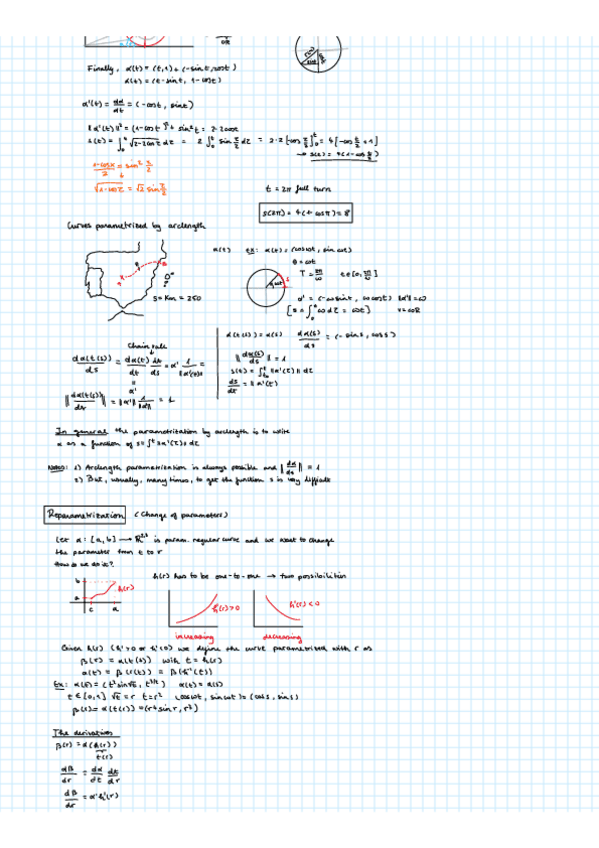 Finally, α(t) = (t,1) + (-sint, -cost)
α(t) = (t-sint, 1-cost)
α'(t) = dα/dt = (-cost, sint)
||α'(t)||² = (1-cost)² + sin²t = 2-2cost
s(t) = ∫₀ᵗ √(2-2cosτ) dτ = 2 ∫₀ᵗ sin τ/2 dτ = 2·2 [-cos τ/2]₀ᵗ = 4[-cos t/2 + 1]
→ s(t) = 4(1-cos t/2)
(1-cosx)/2 = sin² x/2
√(1-cosτ) = √2 sin τ/2
t = 2π full turn
s(2π) = 4(1-cosπ) = 8
Curves parametrized by arclength
α(t) Ex: α(t) = (cosωt, sin ωt)
θ = ωt
T = 2π/ω t∈[0, 2π/ω]
s = Km = 250
α' = (-ωsinωt, ωcosωt) ||α'|| = ω
[s = ∫₀ᵗ ω dτ = ωt] v=ωR
α(t(s)) = α(s) dα(s)/ds = (-sin s, cos s)
Chain rule
dα(t(s))/ds = dα(t)/dt dt/ds = α' 1/||α'(t)||
||dα(s)/ds|| = 1
s(t) = ∫ₜ₀ᵗ ||α'(τ)|| dτ
ds/dt = ||α'(t)||
||dα(t(s))/ds|| = ||α'|| 1/||α'|| = 1
In general the parametrization by arclength is to write
α as a function of s = ∫ᵗ ||α'(τ)|| dτ
Notes: 1) Arclength parametrization is always possible and ||dα/ds|| = 1
2) But, usually, many times, to get the function s is very difficult
Reparametrization (Change of parameters)
Let α: [a,b] → ℝ²,³ is param. regular curve and we want to change
the parameter from t to r
How do we do it?
h(r) has to be one-to-one → two possibilities
b
a
h(r)
c
h'(r)>0
h'(r)<0
increasing
decreasing
Given h(r) (h'>0 or h'<0) we define the curve parametrized with r as
β(r) = α(t(r)) with t = h(r)
α(t) = β(r(t)) = β(h⁻¹(t))
Ex: α(t) = (t² sin√t, t^3/2) α(t) = α(s)
t∈[0,1] √t = r t=r² (cosωt, sinωt) = (cos s, sin s)
β(r) = α(t(r)) = (r⁴ sin r, r³)
The derivatives
β(r) = α(h(r))
t(r)
dβ/dr = dα/dt dt/dr
dβ/dr = α' h'(r)